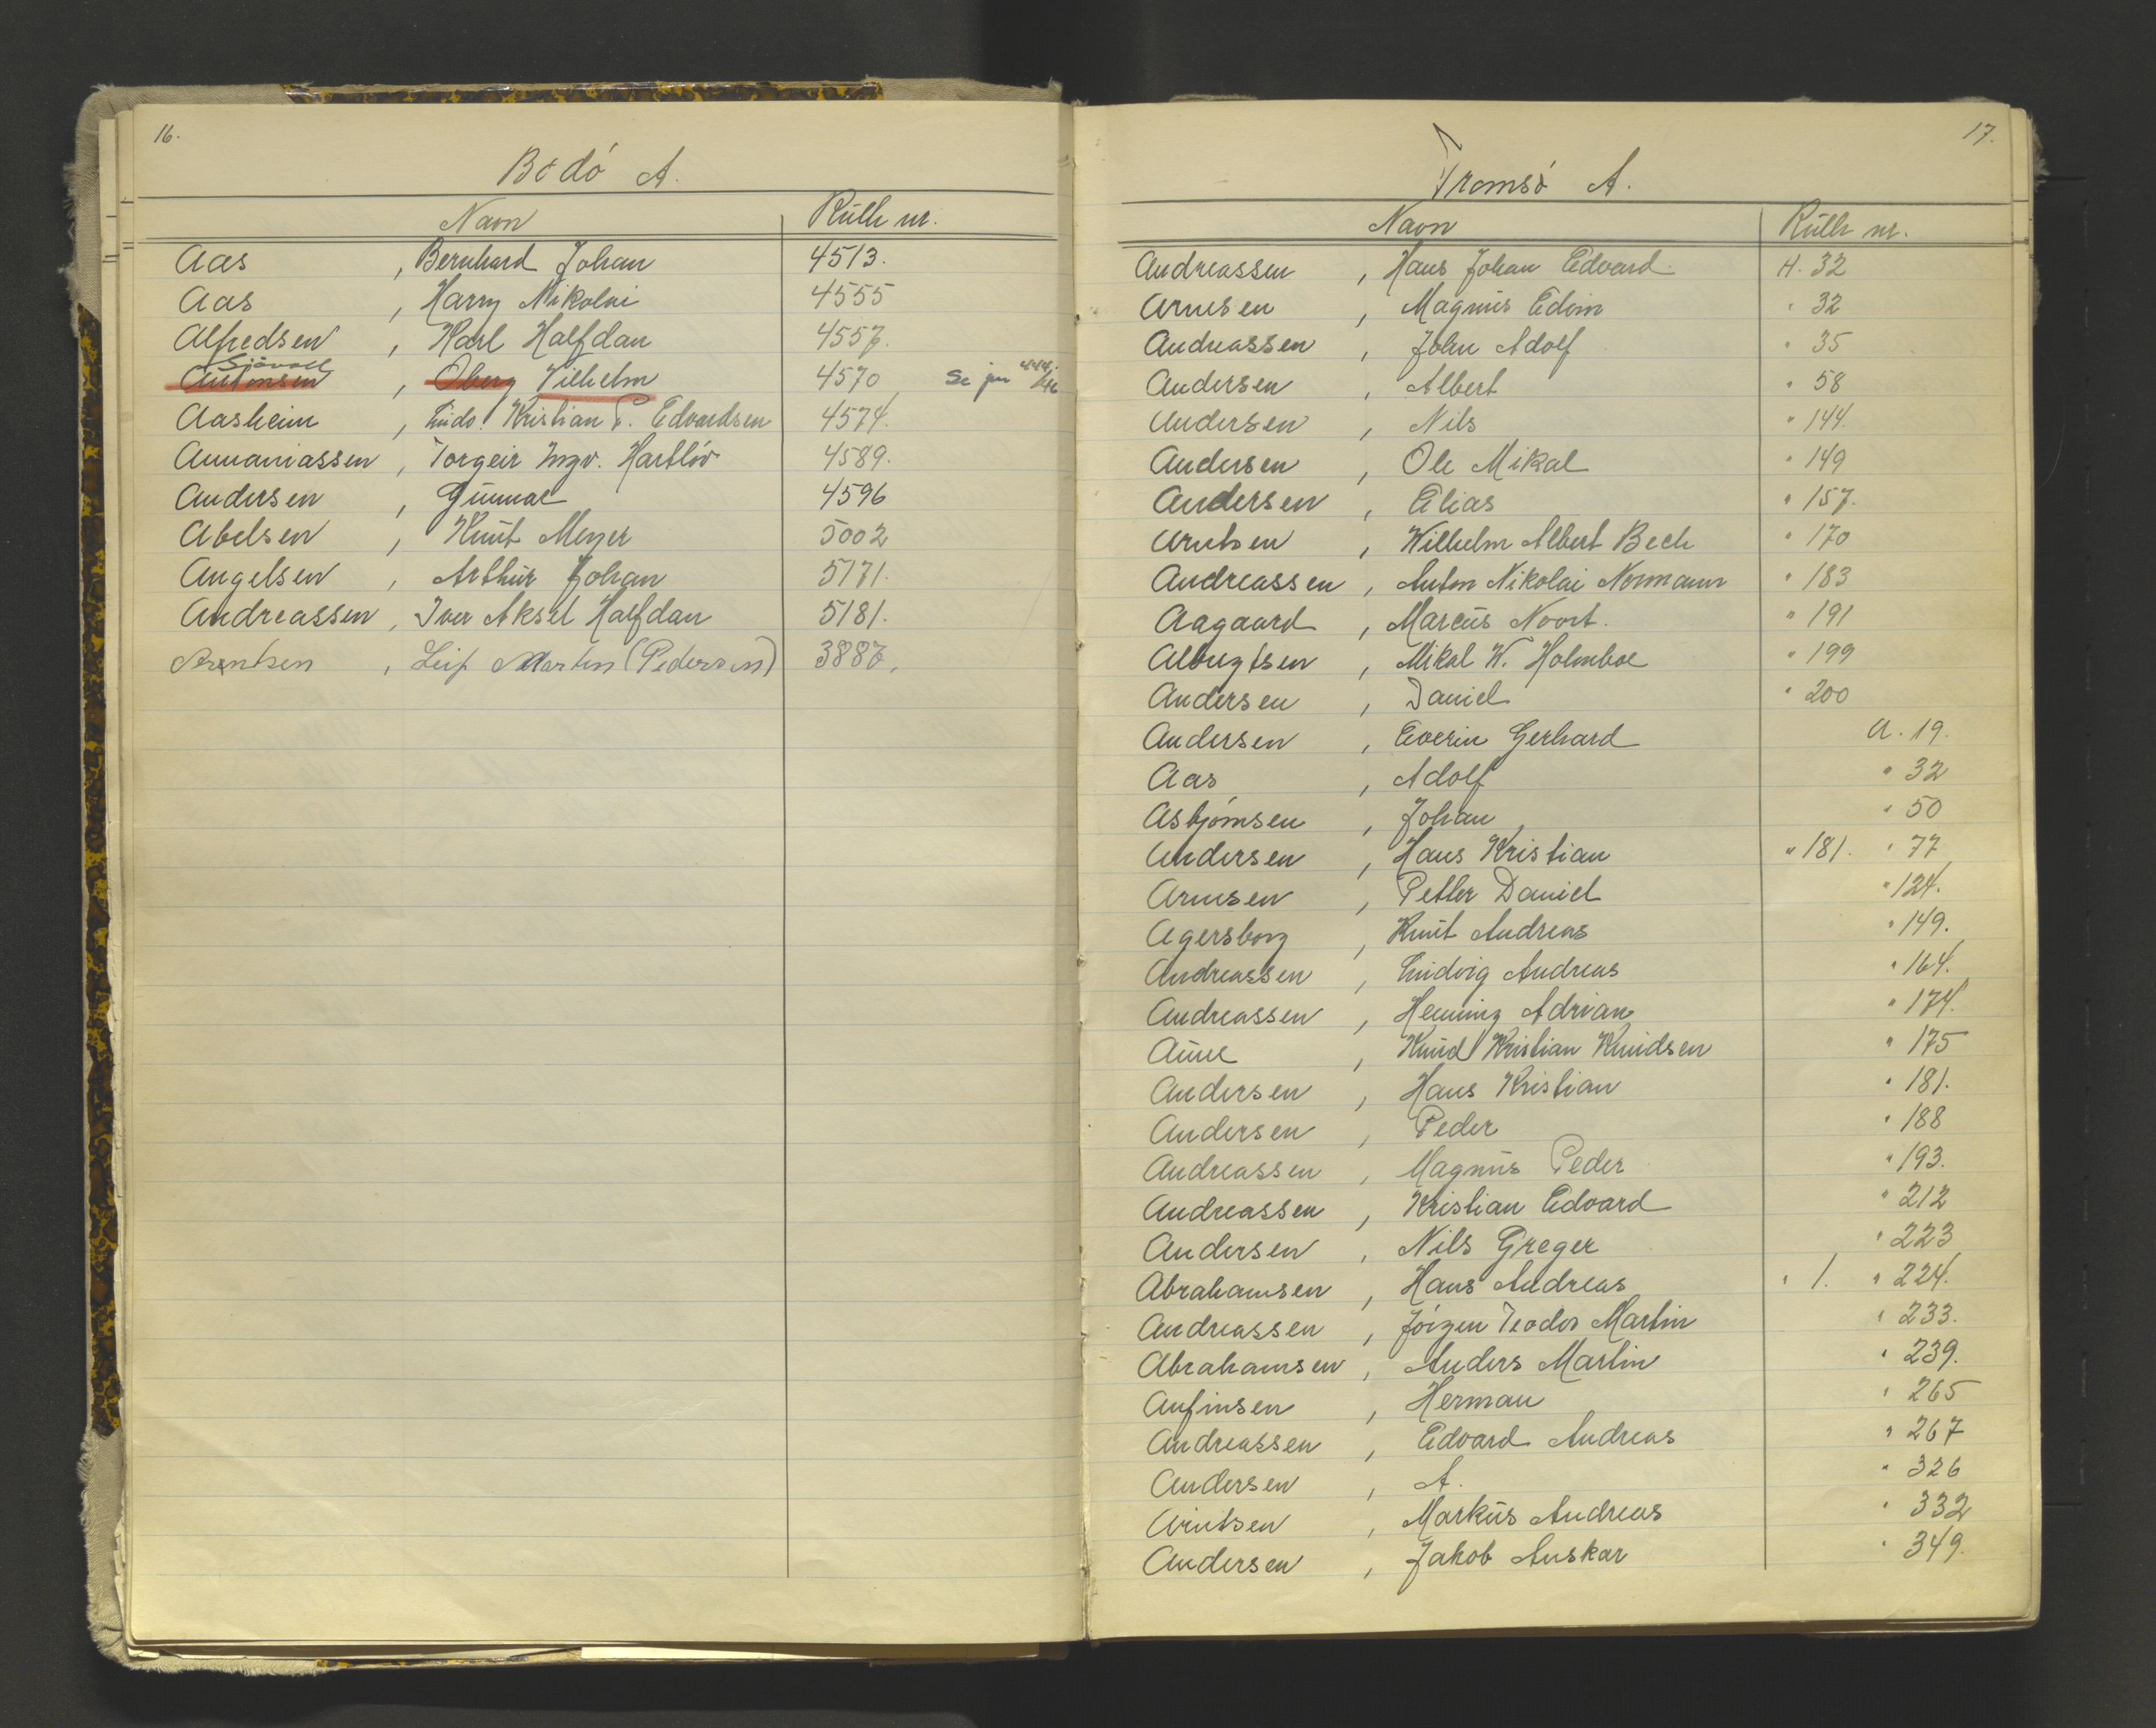 16.
Bodö A.
Navn Rulle nr.
Aas , Bernhard Johan 4513.
Aas , Harry Nikolai 4555
Alfredsen , Karl Halfdan 4557.
Sjövoll
Antonsen , Oberg Vilhelm 4570 Se jnr
Aasheim , Ludv. Kristian P. Edvardsen 4574.
Annaniassen , Torgeir Ingv. Hartlöv 4589.
Andersen , Gunnar 4596
Abelsen , Knut Meyer 5002
Angelsen , Arthur Johan 5171.
Andreassen , Iver Aksel Halfdan 5181.
Arentsen , Leif Martin (Pedersen) 3887.
17.
Tromsö A.
Navn Rulle nr.
Andreassen , Hans Johan Edvard H. 32
Arnesen , Magnus Edvin " 32
Andreassen , John Adolf " 35
Andersen , Albert " 58
Andersen , Nils " 144.
Andersen , Ole Mikal " 149
Andersen , Elias " 157.
Arntsen , Wilhelm Albert Bech " 170
Andreassen , Anton Nikolai Normann " 183
Aagaard , Marcus Noort. " 191
Albrigtsen , Mikal W. Holmboe " 199
Andersen , Daniel " 200
Andersen , Everin Gerhard A. 19.
Aas , Adolf " 32
Asbjörnsen , Johan " 50
Andersen , Hans Kristian " 181. " 77
Arnesen , Petter Daniel " 124.
Agersborg , Knut Andreas " 149.
Andreassen , Ludvig Andreas " 164.
Andreassen , Henning Adrian " 174.
Aune , Knud Kristian Knudsen " 175
Andersen , Hans Kristian " 181.
Andersen , Peder " 188
Andreassen , Magnus Peder " 193.
Andreassen , Kristian Edvard " 212
Andersen , Nils Greger " 223
Abrahamsen , Hans Andreas " 1. " 224.
Andreassen , Jörgen Teodor Martin " 233.
Abrahamsen , Anders Martin " 239.
Anfinsen , Herman " 265
Andreassen , Edvard Andreas " 267
Andersen , A. " 326
Arntsen , Markus Andreas " 332
Andersen , Jakob Anskar " 349.